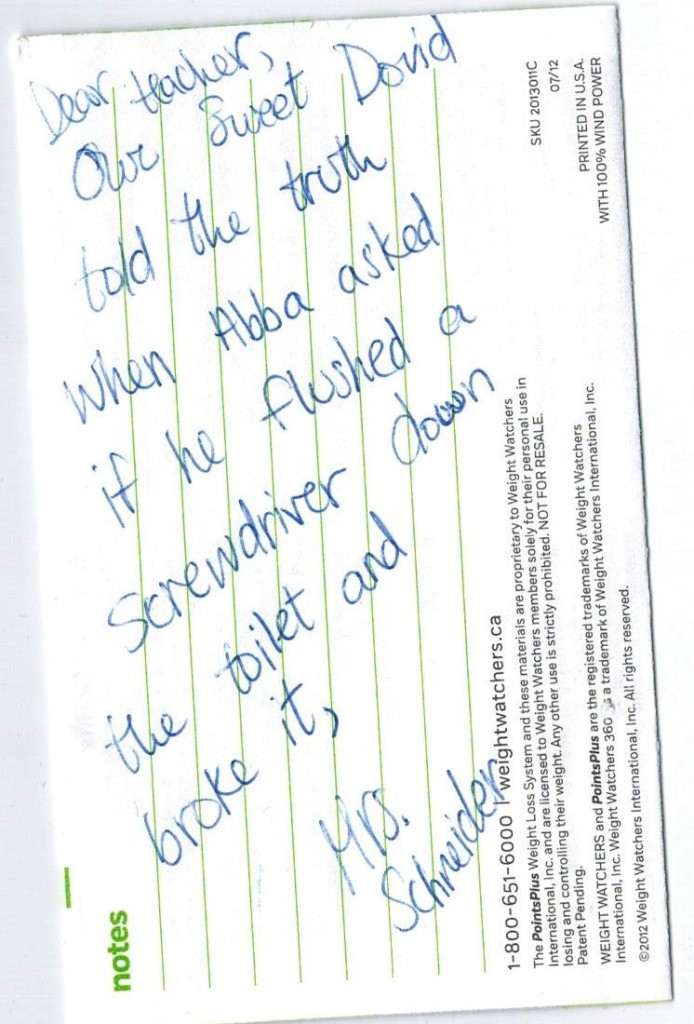 Dear teacher,
Our Sweet David
told the truth
when Abba asked
if he flushed a
screwdriver down
the toilet and
broke it,
Mrs.
Schneider
notes
1-800-651-6000 | weightwatchers.ca
The PointsPlus Weight Loss System and these materials are proprietary to Weight Watchers
International, Inc. and are licensed to Weight Watchers members solely for their personal use in
losing and controlling their weight. Any other use is strictly prohibited. NOT FOR RESALE.
Patent Pending.
WEIGHT WATCHERS and PointsPlus are the registered trademarks of Weight Watchers
International, Inc. Weight Watchers 360 is a trademark of Weight Watchers International, Inc.
©2012 Weight Watchers International, Inc. All rights reserved.
SKU 2013011C
07/12
PRINTED IN U.S.A.
WITH 100% WIND POWER